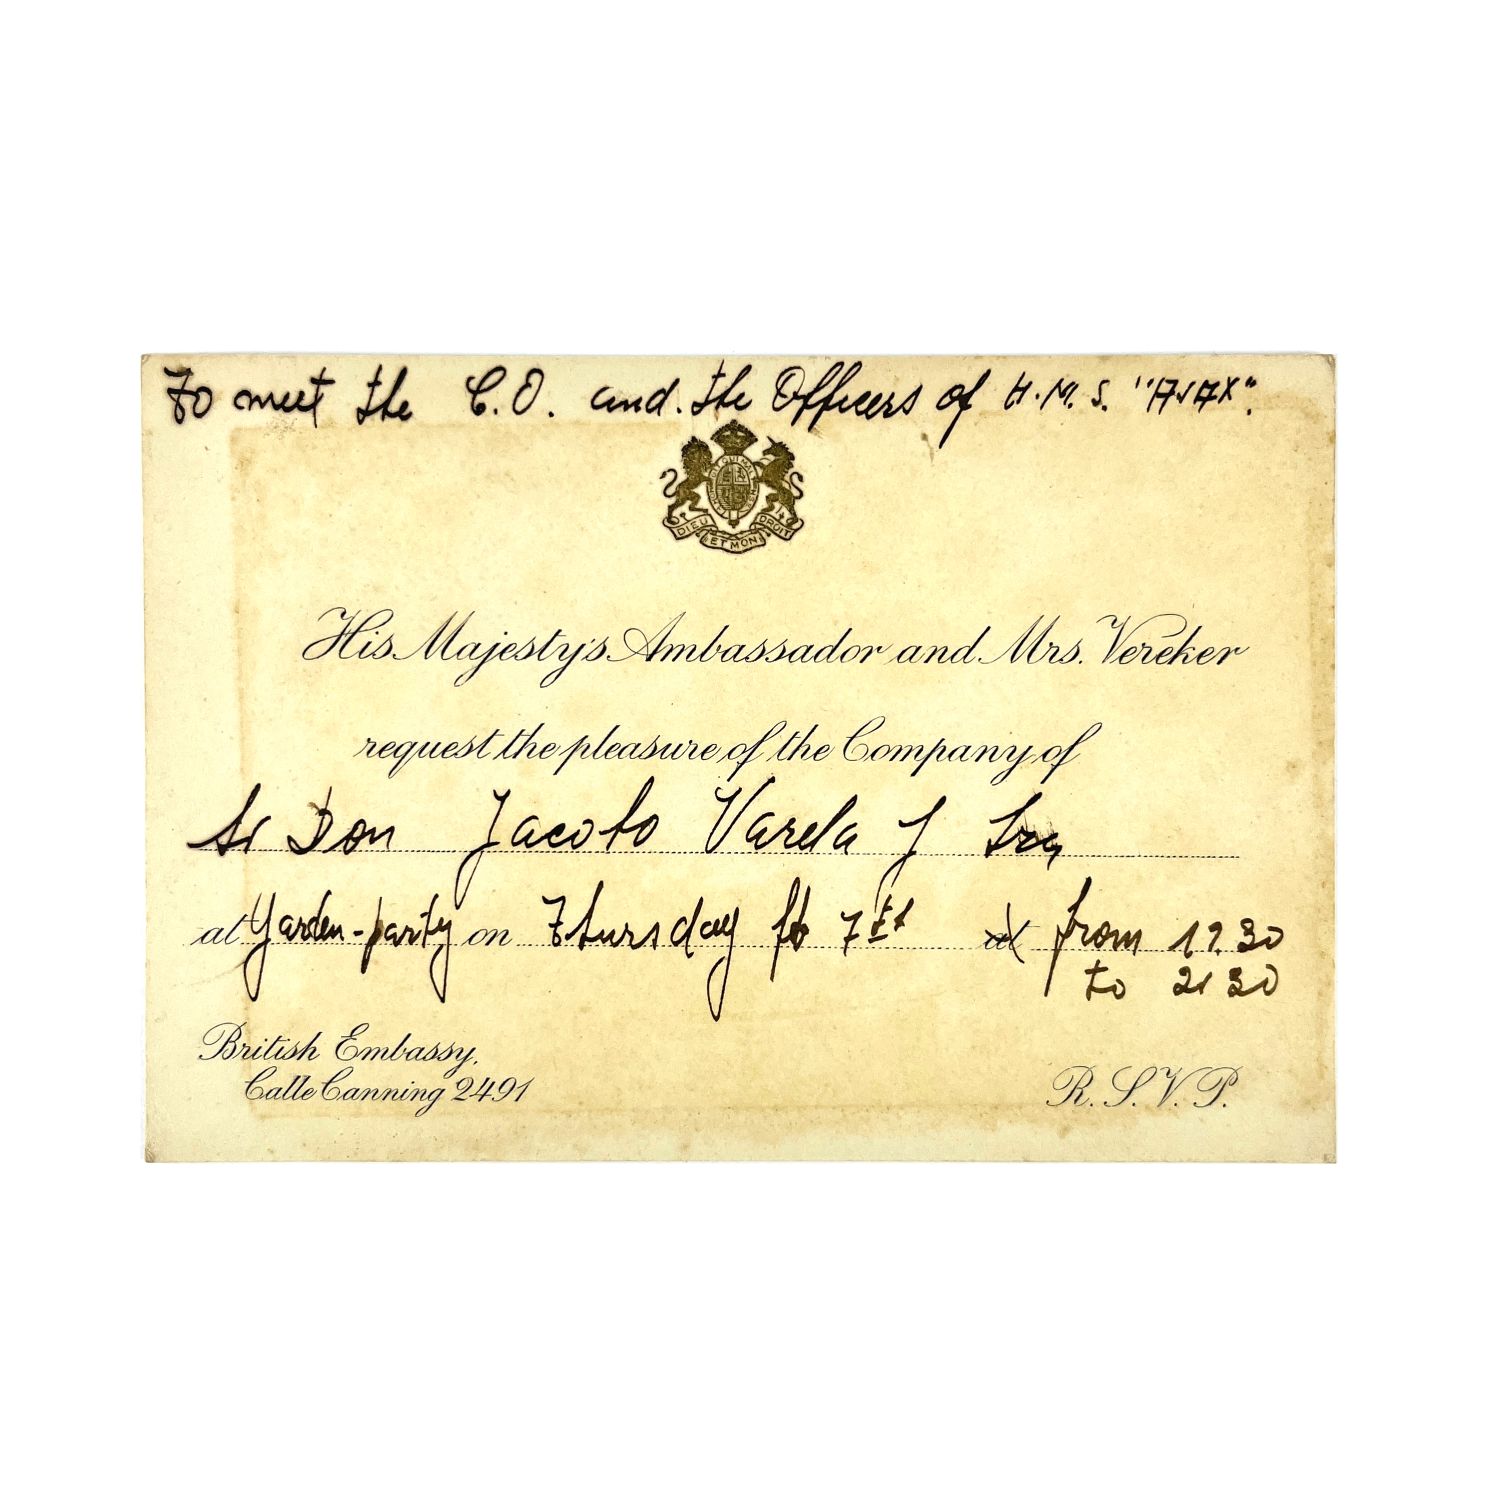 To meet the C.O. and the Officers of H.M.S. "AJAX".
DIEU ET MON DROIT
His Majesty's Ambassador and Mrs. Vereker
request the pleasure of the Company of
Sr Don Jacobo Varela y Sra
at Garden-party on Thursday fb 7th at from 19.30
to 21 30
British Embassy,
Calle Canning 2491
R.S.V.P.